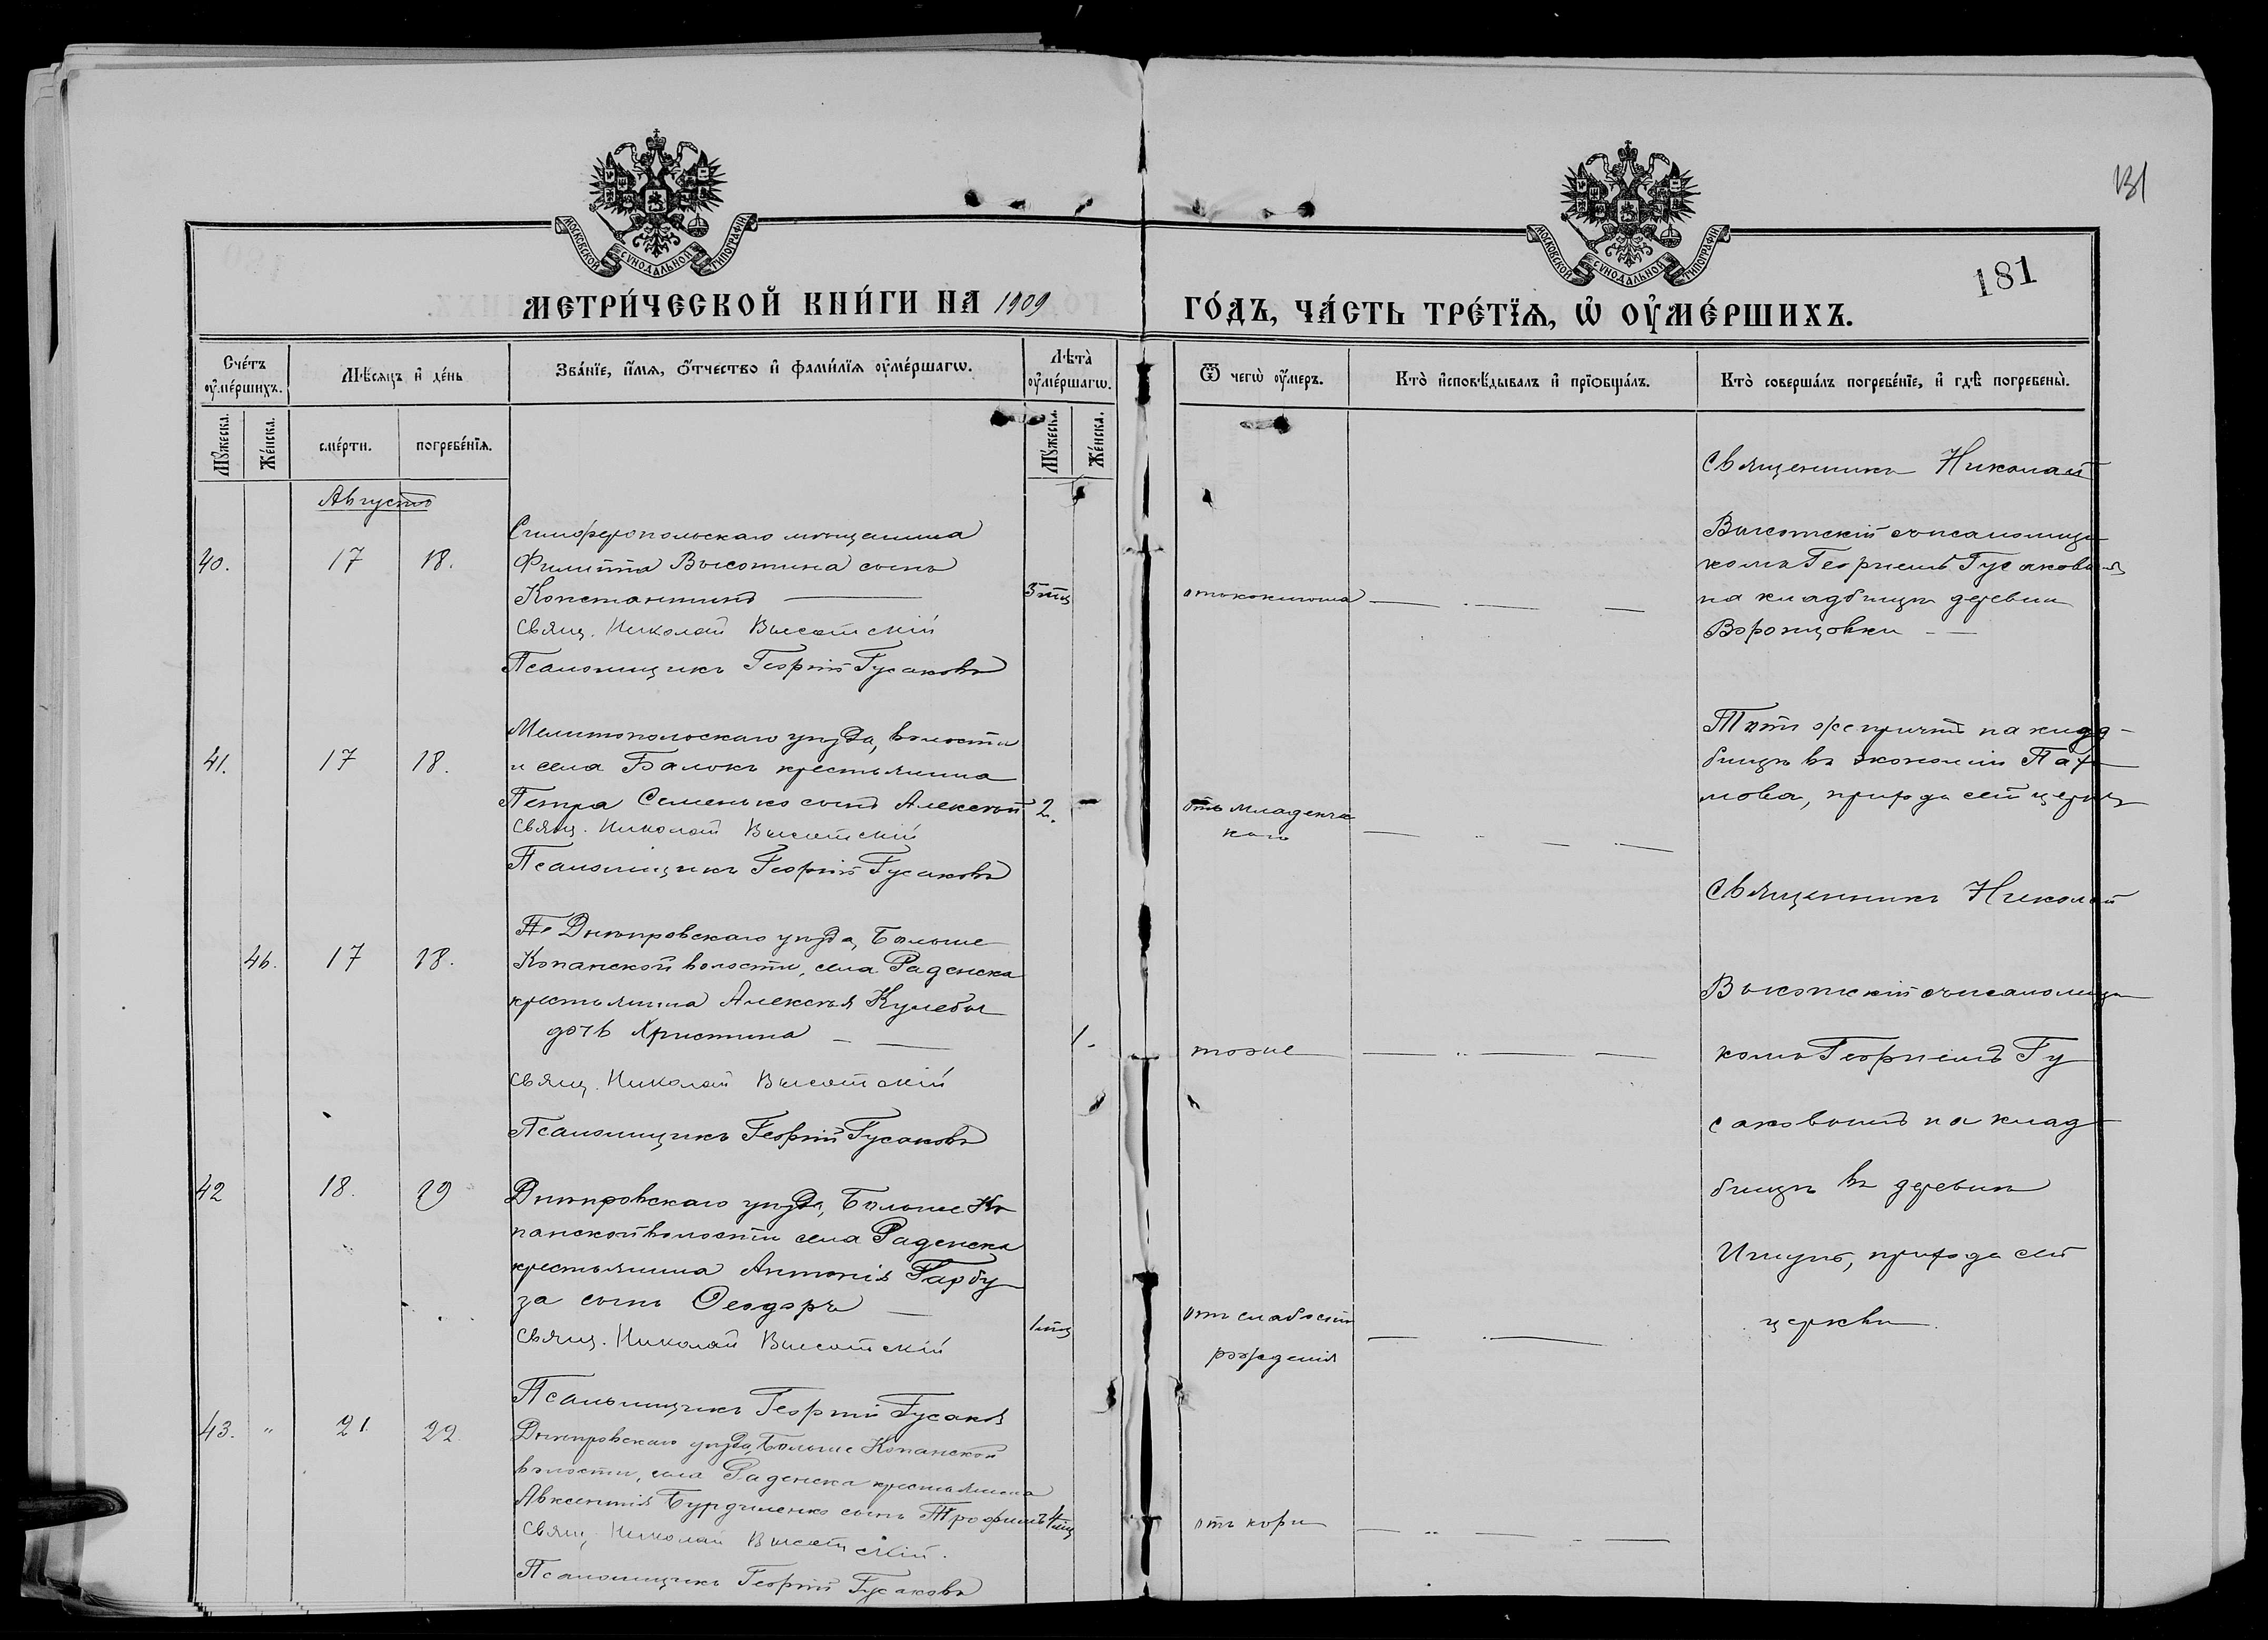 131
181
МОСКОВСКОЙ СѴНОДАЛЬНОЙ ТИПОГРАФІИ
МОСКОВСКОЙ СѴНОДАЛЬНОЙ ТИПОГРАФІИ
МЕТРИ́ЧЕСКОЙ КНИ́ГИ НА 1909
ГО́ДЪ, ЧА́СТЬ ТРЕ́ТЇѦ, Ѡ҆ ОУ҆МЕ́РШИХЪ.
Сче́тъ оу҆ме́ршихъ.
Мѣ́сяцъ и҆ де́нь
Зва́нїе, и҆́мя, ѻ҆́тчество и҆ фами́лїя оу҆ме́ршагѡ.
Лѣ́та оу҆ме́ршагѡ.
Ѿ чегѡ̀ оу҆́меръ.
Кто̀ и҆сповѣ́дывалъ и҆ прїѡбща́лъ.
Кто̀ соверша́лъ погребе́нїе, и҆ гдѣ̀ погребены̀.
Мꙋ́жеска.
Же́нска.
сме́рти.
погребе́нїя.
Мꙋ́жеска.
Же́нска.
Августъ
40.
17
18.
Симферопольскаго мѣщанина
Филиппа Высотина сынъ
Константинъ
Свящ. Николай Высотскій
Псаломщикъ Георгій Гусаковъ
Священникъ Николай
Высотскій съ псаломщи
комъ Георгіемъ Гусаковымъ
на кладбищѣ деревни
Воронцовки
41.
17
18.
Мелитопольскаго уѣзда, волости
и села Балокъ крестьянина
Петра Семенько сынъ Алексѣй
2.
Свящ. Николай Высотскій
Псаломщикъ Георгій Гусаковъ
отъ младенчес
каго
Тотъ же причтъ на клад-
бищѣ въ экономіи Пах
мова, прихода сей церкви
46.
17
18.
Днѣпровскаго уѣзда, Больше
Копанской волости, села Раденска
крестьянина Алексѣя Кулебы
дочь Христина
1.
Свящ. Николай Высотскій
Псаломщикъ Георгій Гусаковъ
тоже
Священникъ Николай
Высотскій съ псаломщи
комъ Георгіемъ Гу
саковымъ на клад
бищѣ въ деревнѣ
прихода сей
церкви.
42
18.
19
Днѣпровскаго уѣзда, Больше Ко
панской волости села Раденска
крестьянина Антонія Гарбу
за сынъ Ѳеодоръ
1 мц
Свящ. Николай Высотскій
Псаломщикъ Георгій Гусаковъ
отъ слабости
рожденія
43.
"
21.
22
Днѣпровскаго уѣзда, Больше Копанской
волости, села Раденска крестьянина
Авксентія Бурдиленко сынъ Трофимъ
4 мц
Свящ. Николай Высотскій.
Псаломщикъ Георгій Гусаковъ
отъ кори